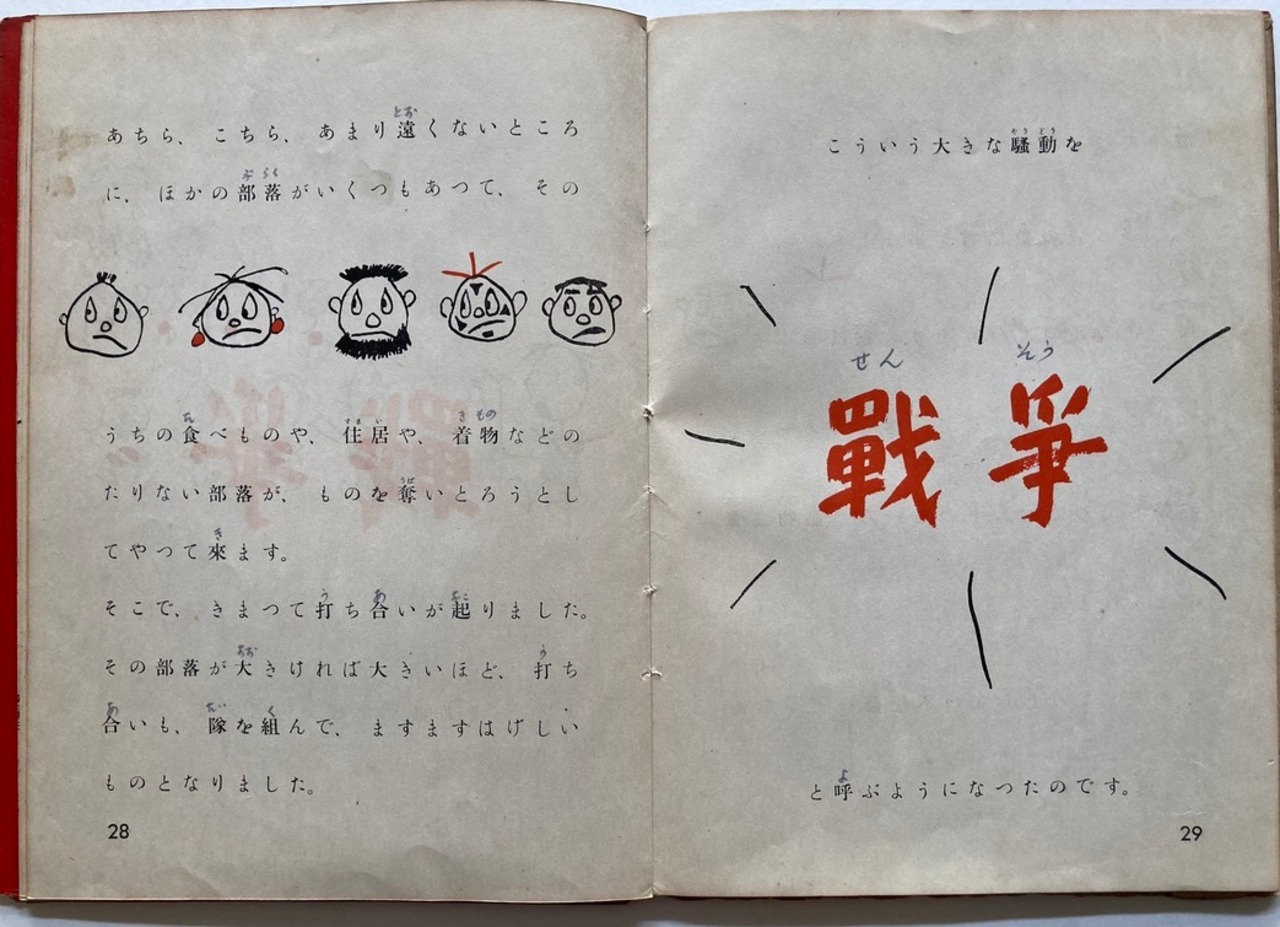 あちら、こちら、あまり遠くないところ
に、ほかの部落がいくつもあつて、その
うちの食べものや、住居や、着物などの
たりない部落が、ものを奪いとろうとし
てやつて來ます。
そこで、きまつて打ち合いが起りました。
その部落が大きければ大きいほど、打ち
合いも、隊を組んで、ますますはげしい
ものとなりました。
28
こういう大きな騷動を
せんそう
戰爭
と呼ぶようになつたのです。
29